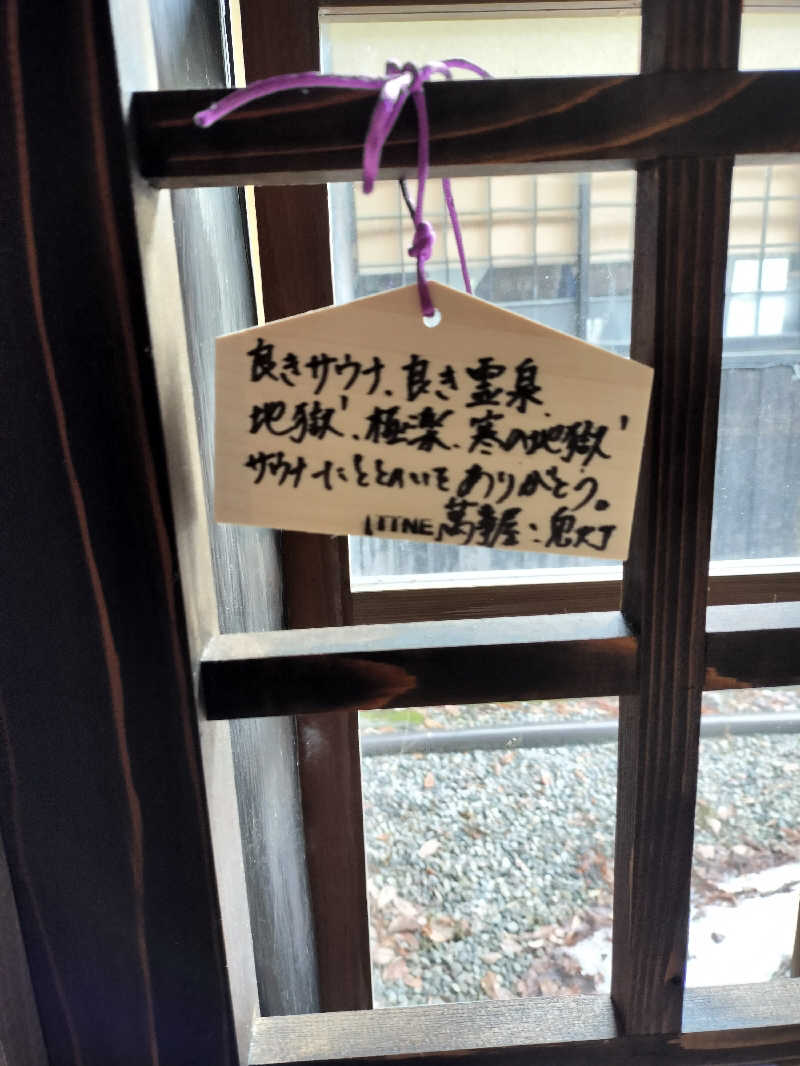 良きサウナ、良き霊泉、
地獄、極楽、寒の地獄
サウナーたととのいをありがとう。
萬寿屋:鬼灯